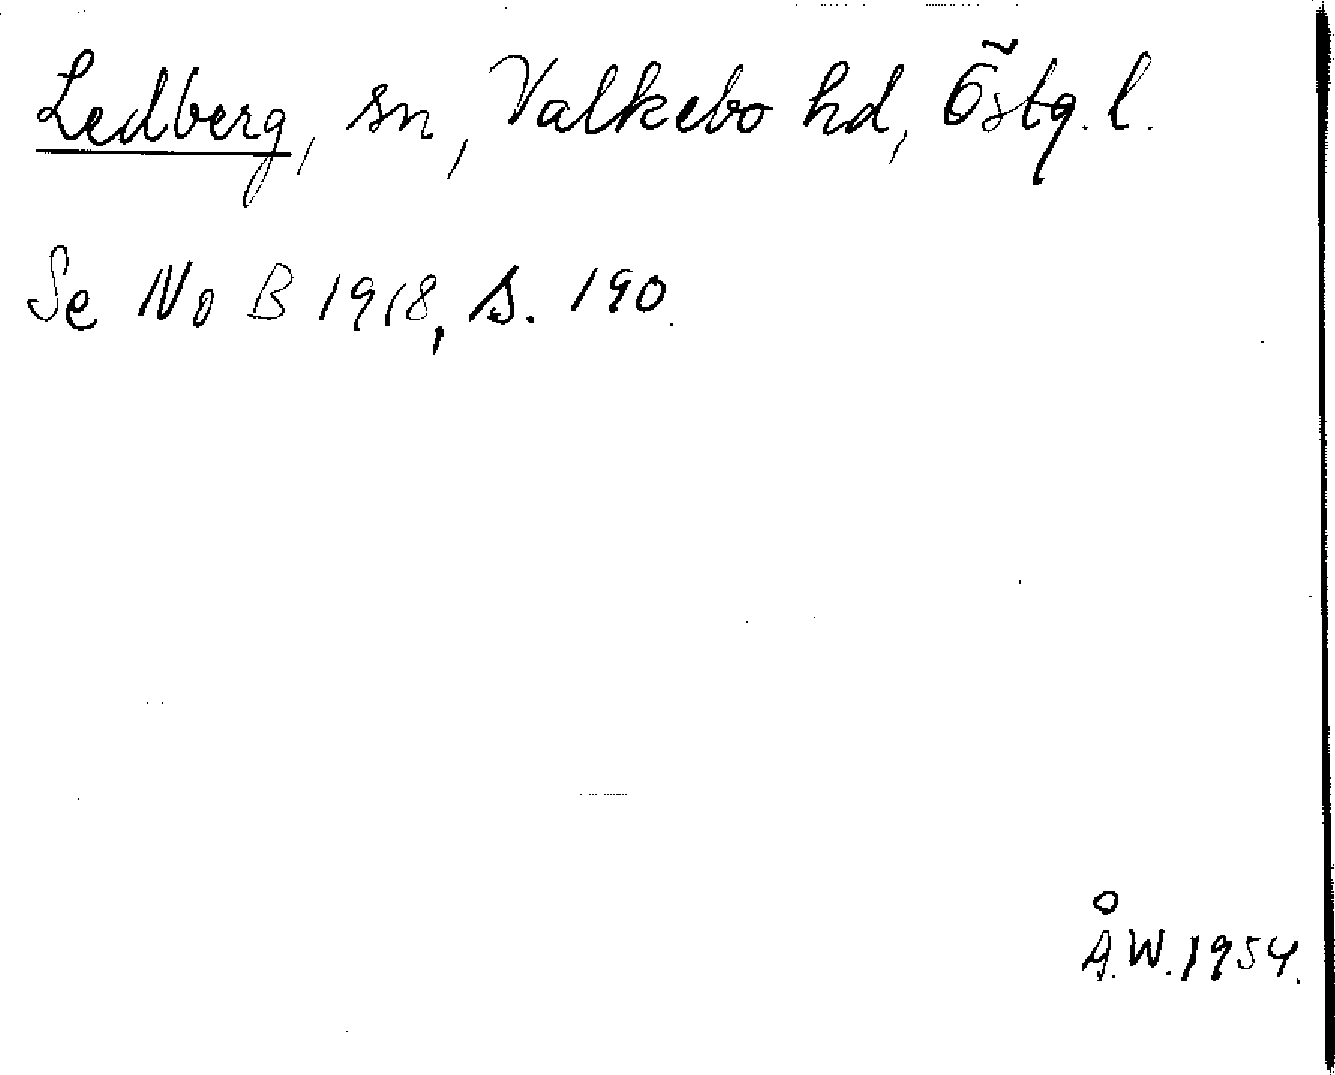 Ledberg, sn, Valkebo hd, Östg. l.
Se NoB 1918, s. 190.
Å.W. 1954.